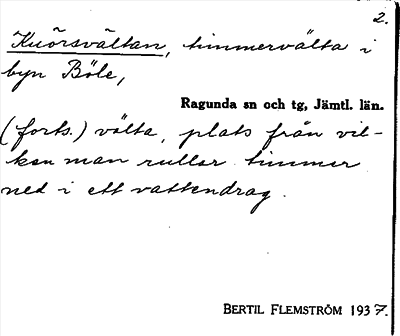 2.
Knörsvältan, timmervälta i
byn Böle,
Ragunda sn och tg, Jämtl. län.
(forts.) välta, plats från vil-
ken man rullar timmer
ned i ett vattendrag.
BERTIL FLEMSTRÖM 1937.